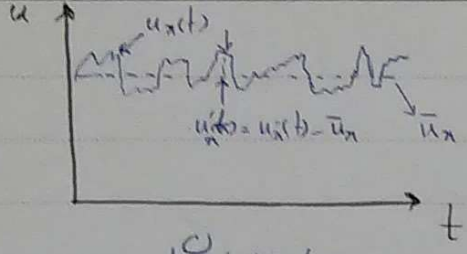 u
uₓ(t)
u'ₓ(t) = uₓ(t) - ūₓ
ūₓ
t